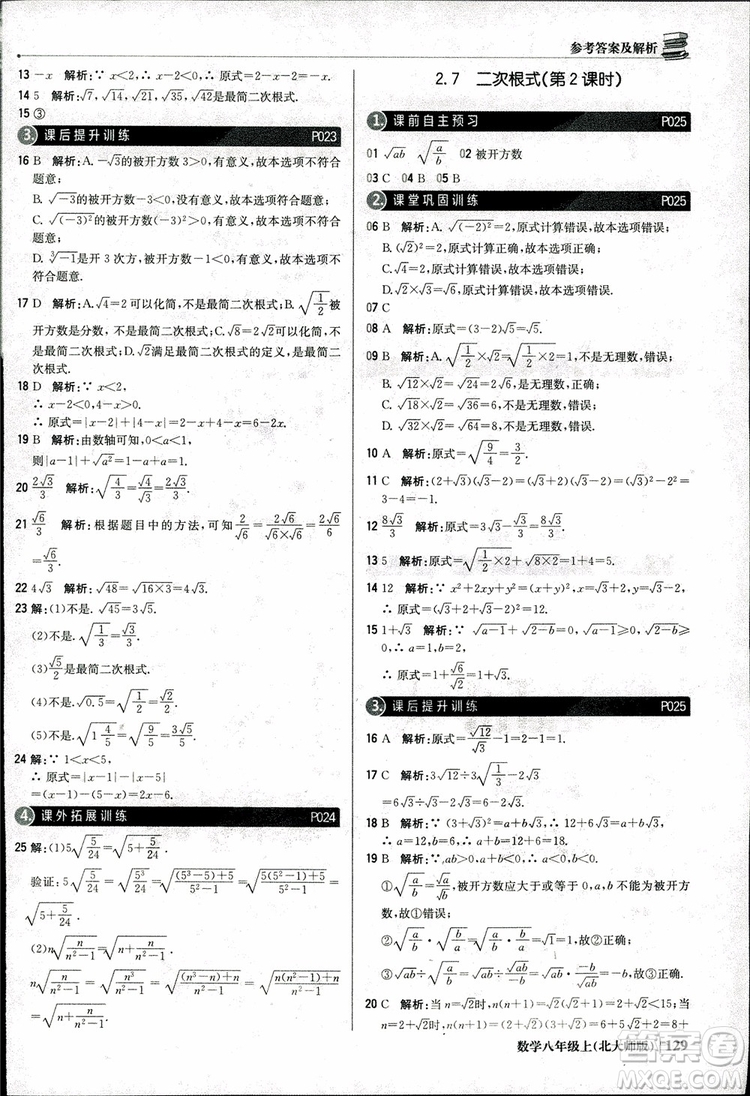 参考答案及解析
13 -x 解析:∵ x<2,∴ x-2<0,∴ 原式=-x.
14 5 解析:√7,√14,√21,√35,√42是最简二次根式.
15 ③
3. 课后提升训练 P023
16 B 解析:A.-√3的被开方数3>0,有意义,故本选项不符合
题意;
B.√-3的被开方数-3<0,无意义,故本选项符合题意;
C.√(-3)²的被开方数(-3)²>0,有意义,故本选项不符合
题意;
D.∛-1是开3次方,被开方数有意义,故本选项不符合
题意.
17 D 解析:A.√4=2可以化简,不是最简二次根式;B.√(1/2)被
开方数是分数,不是最简二次根式;C.√8=2√2,不是最简
二次根式;D.√2满足最简二次根式的定义,是最简二次
根式.
18 D 解析:∵ x<2,
∴ x-2<0,
∴ 原式=|x-2|+|x-4|=2-x+4-x=6-2x.
19 B 解析:由数轴可知,0<a<1,
则|a-1|+√a²=1-a+a=1.
20 2√3/3 解析:√(4/3)=√4/√3=2/√3=2√3/3.
21 √6/3 解析:根据题目中的方法,可知2/√6=2√6/(√6×√6)=2√6/6
=√6/3.
22 4√3 解析:√48=√(16×3)=4√3.
23 解:(1)不是.√45=3√5.
(2)不是.√(1/3)=√3/3.
(3)√5/2是最简二次根式.
(4)不是.√(1/2)=√2/2.
(5)不是.√(1 4/5)=√(9/5)=3√5/5.
24 解:∵ 1<x<5,
∴ 原式=|x-1|-|x-5|
=(x-1)-(5-x)=2x-6.
4. 课外拓展训练 P024
25 解:(1)5√(5/24).
验证:5√(5/24)=√(5³/24)=√((5³-5+5)/24)=√((5(5²-1)+5)/(5²-1))=
√(5+5/24).
(2)n√(n/(n²-1)).
n√(n/(n²-1))=√(n³/(n²-1))=√((n³-n+n)/(n²-1))=√((n(n²-1)+n)/(n²-1))
=√(n+n/(n²-1)).
2.7 二次根式(第2课时)
1. 课前自主预习 P025
01 √ab √(a/b) 02 被开方数
03 C 04 B 05 B
2. 课堂巩固训练 P025
06 B 解析:A.√(-2)²=2,原式计算错误,故本选项错误;
B.(√2)²=2,原式计算正确,故本选项正确;
C.√4=2,原式计算错误,故本选项错误;
D.√2×√2=2,原式计算错误,故本选项错误.
07 C
08 A 解析:原式=(3-2)√5=√5.
09 B 解析:A.√(1/2)×√2=√(1/2×2)=1,不是无理数;
B.√12×√2=√24=2√6,是无理数;
C.√18×√2=√36=6,不是无理数;
D.√32×√2=√64=8,不是无理数.
10 A 解析:原式=√(9/4)=3/2.
11 C 解析:(2+√3)(√3-2)=(√3+2)(√3-2)=(√3)²-2²=
3-4=-1.
12 8√3/3 解析:原式=3√3-√3/3=8√3/3.
13 5 解析:原式=√(1/2×2)+√(8×2)=1+4=5.
14 12 解析:∵ x²+2xy+y²=(x+y)²,
∴ 原式=(√3+1+√3-1)²=(2√3)²=12.
15 1+√3 解析:∵ √(a-1)+√(2-b)=0,√(a-1)≥0,√(2-b)≥0,
∴ a-1=0,2-b=0,解得a=1,b=2.
∴ 原式=1+√6/√2=1+√3.
3. 课后提升训练 P025
16 A 解析:原式=√12/√3-1=2-1=1.
17 C 解析:3√12÷3√(1/3)-2√3=6√3÷√3-2√3=
6-2√3.
18 B 解析:∵ (3+√3)²=a+b√3,∴ 12+6√3=a+b√3,
∴ a=12,b=6,∴ a+b=12+6=18.
19 B 解析:∵ ab>0,a+b<0,∴ a<0,b<0.
①√(a/b)=√a/√b被开方数应大于或等于0,a,b不能作为被开方
数,故①错误;
②√(a/b)·√(b/a)=√(a/b·b/a)=√1=1,故②正确;
20 C 解析:当n=√2时,n(n+1)=√2(√2+1)=2+√2<15;当
数学八年级上(北大师版) 129